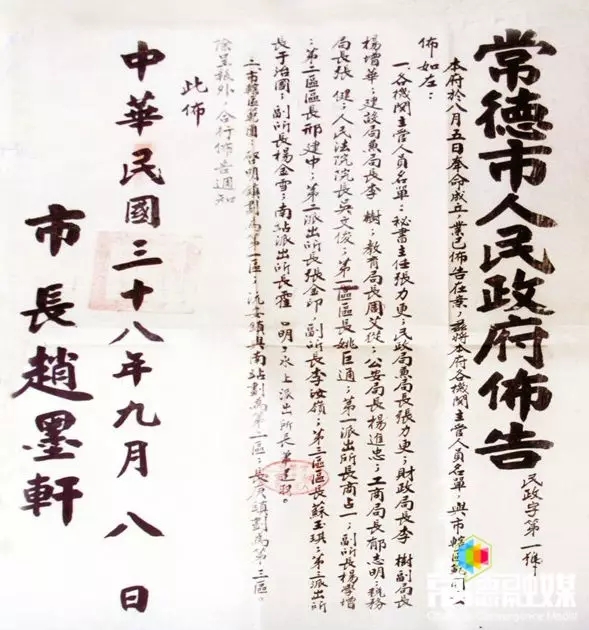 常德市人民政府佈告
民政字第一號
本府於八月五日奉命成立，業已佈告在案，茲將本府各機關主管人員名單，與市轄區範圍公
佈如左：
一、各機關主管人員名單：秘書主任張力更；民政局兼局長張力更；財政局長李樹副局長
楊增華；建設局兼局長李樹；教育局長周艾從；公安局長楊進忠；工商局長郁志明；稅務
局長張健；人民法院院長吳文俊；第一區區長姚巨通；第一派出所長商占一，副所長楊學增
；第二區區長邢建中；第二派出所長張金印，副所長李汝嶺；第三區區長蘇玉琪；第三派出所
長于治國，副所長楊金雪；南站派出所長霍明；水上派出所長建羽。
二、市轄區範圍：啓明鎮劃為第一區；沅安鎮與南站劃為第二區；長庚鎮劃為第三區。
除呈報外，合行佈告週知
此佈
中華民國三十八年九月八日
市長趙墨軒
常德融媒
Changde Convergence Media